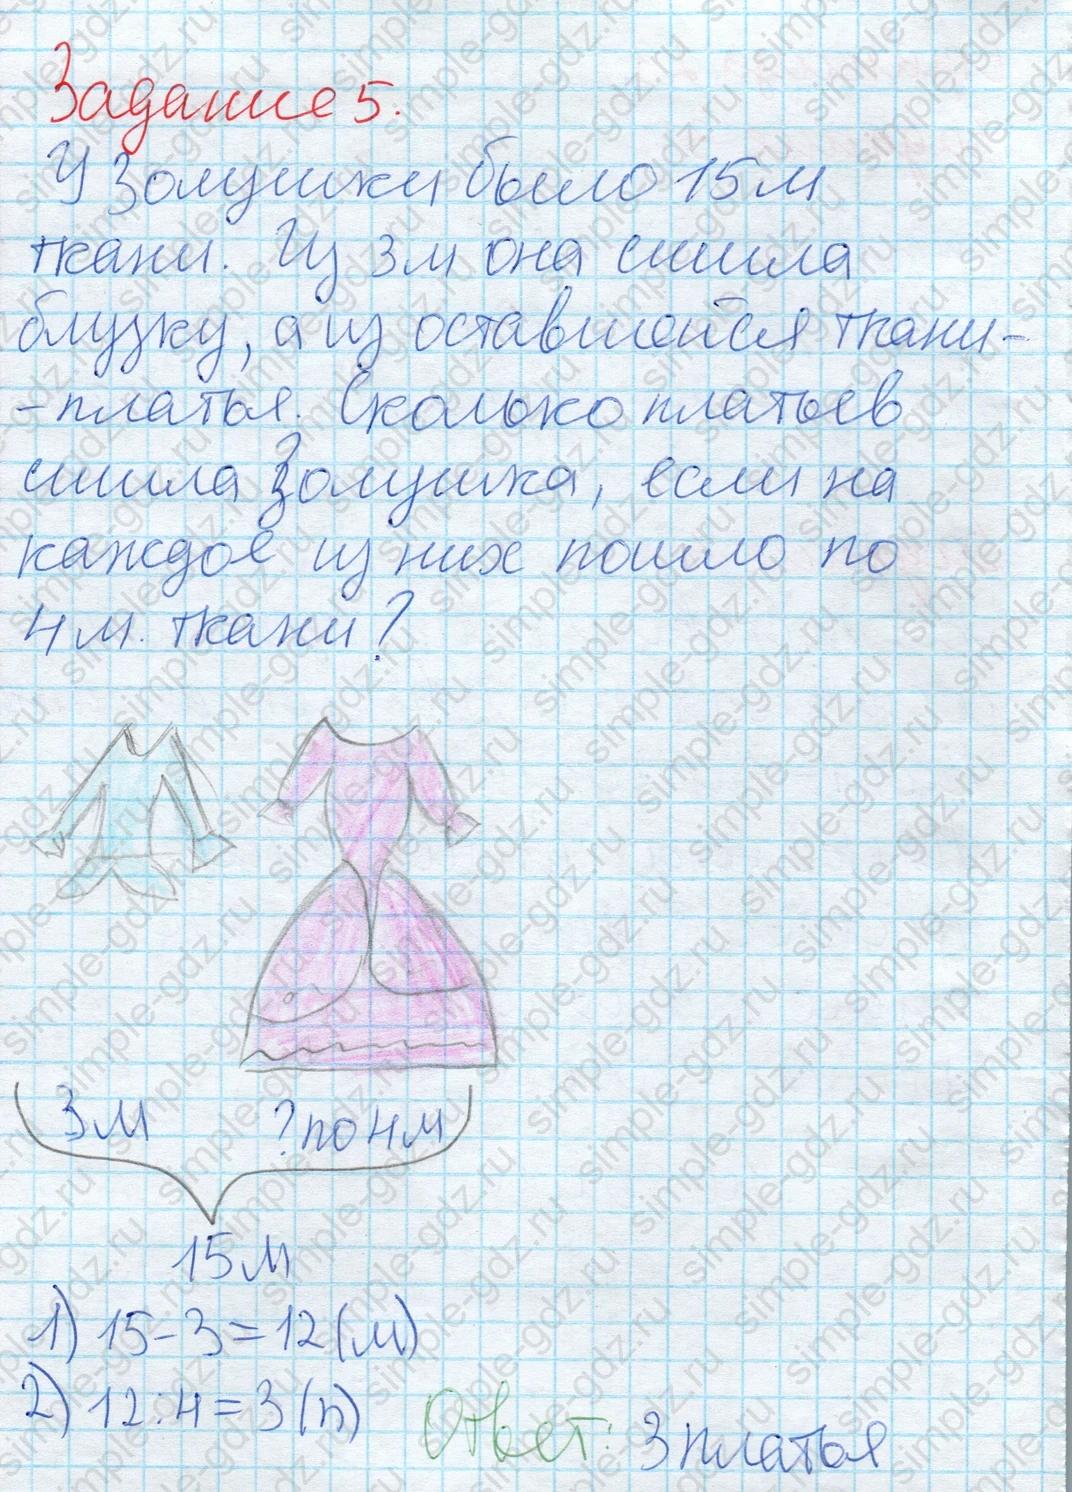 Задание 5.
У Золушки было 15 м
ткани. Из 3 м она сшила
блузку, а из оставшейся ткани-
-платья. Сколько платьев
сшила Золушка, если на
каждое из них пошло по
4 м. ткани?
3 м ? по 4 м
15 м
1) 15-3=12(м)
2) 12:4=3(п) Ответ: 3 платья
simple-gdz.ru